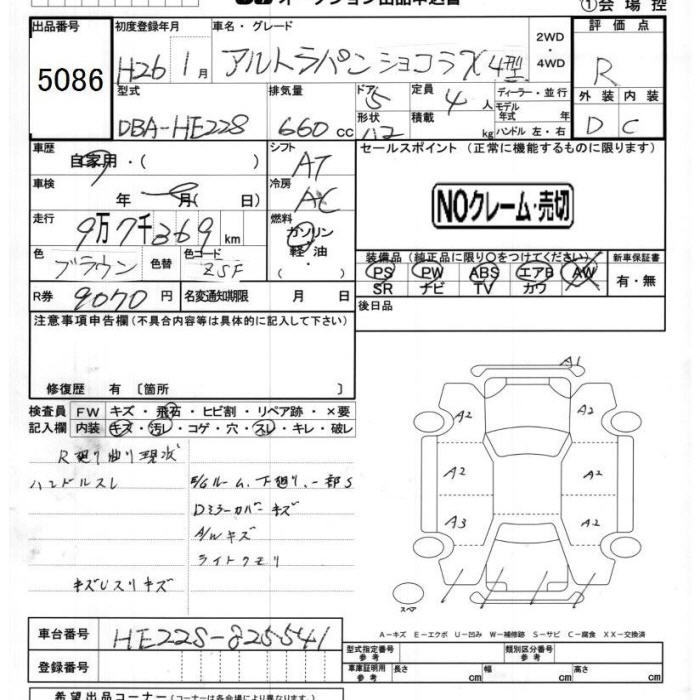 オークション出品申込書
①会場控
出品番号 初度登録年月 車名・グレード 評価点
5086 H26 1月 アルトラパン ショコラX 4型 2WD・4WD R
型式 排気量 ドア 5 定員 4人 ディーラー・並行 外装 内装
形状 積載 kg モデル年式 年
DBA-HE22S 660cc ハンドル 左・右 D C
車歴 自家用・( ) シフト AT セールスポイント (正常に機能するものに限ります)
車検 年 月(日) 冷房 AC
NOクレーム・売切
走行 9万7千369km 燃料 ガソリン・軽油・
色 ブラウン 色替 色コード ZSF
装備品 (純正品に限り○をつけてください) 新車保証書
PS PW ABS エアB AW 有・無
SR ナビ TV カワ
R券 9070円 名変通知期限 月 日 後日品
注意事項申告欄(不具合内容等は具体的に記入して下さい)
修復歴 有 〔箇所 〕
検査員 FW キズ・飛石・ヒビ割・リペア跡・×要
記入欄 内装 キズ・汚レ・コゲ・穴・スレ・キレ・破レ
R廻り曲り現状
ハンドルスレ E/Gルーム、下廻り、一部S
Dミラーカバーキズ
A/Wキズ
ライトクモリ
キズUスリキズ
A1
A2 A2
A2 A2
A3 A2
スペア
A-キズ E-エクボ U-凹み W-補修跡 S-サビ C-腐食 XX-交換済
車台番号 HE22S-825541
型式指定番号 参考 類別区分番号 参考
登録番号 車庫証明用 参考 長さ cm 幅 cm 高さ cm
希望出品コーナー